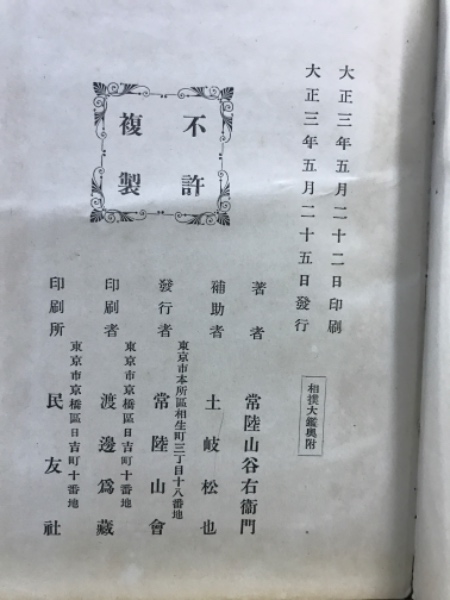 大正三年五月二十二日印刷
大正三年五月二十五日發行
相撲大鑑奧附
不許
複製
著者 常陸山谷右衞門
補助者 土岐松也
東京市本所區相生町三丁目十八番地
發行者 常陸山會
東京市京橋區日吉町十番地
印刷者 渡邊爲藏
東京市京橋區日吉町十番地
印刷所 民友社